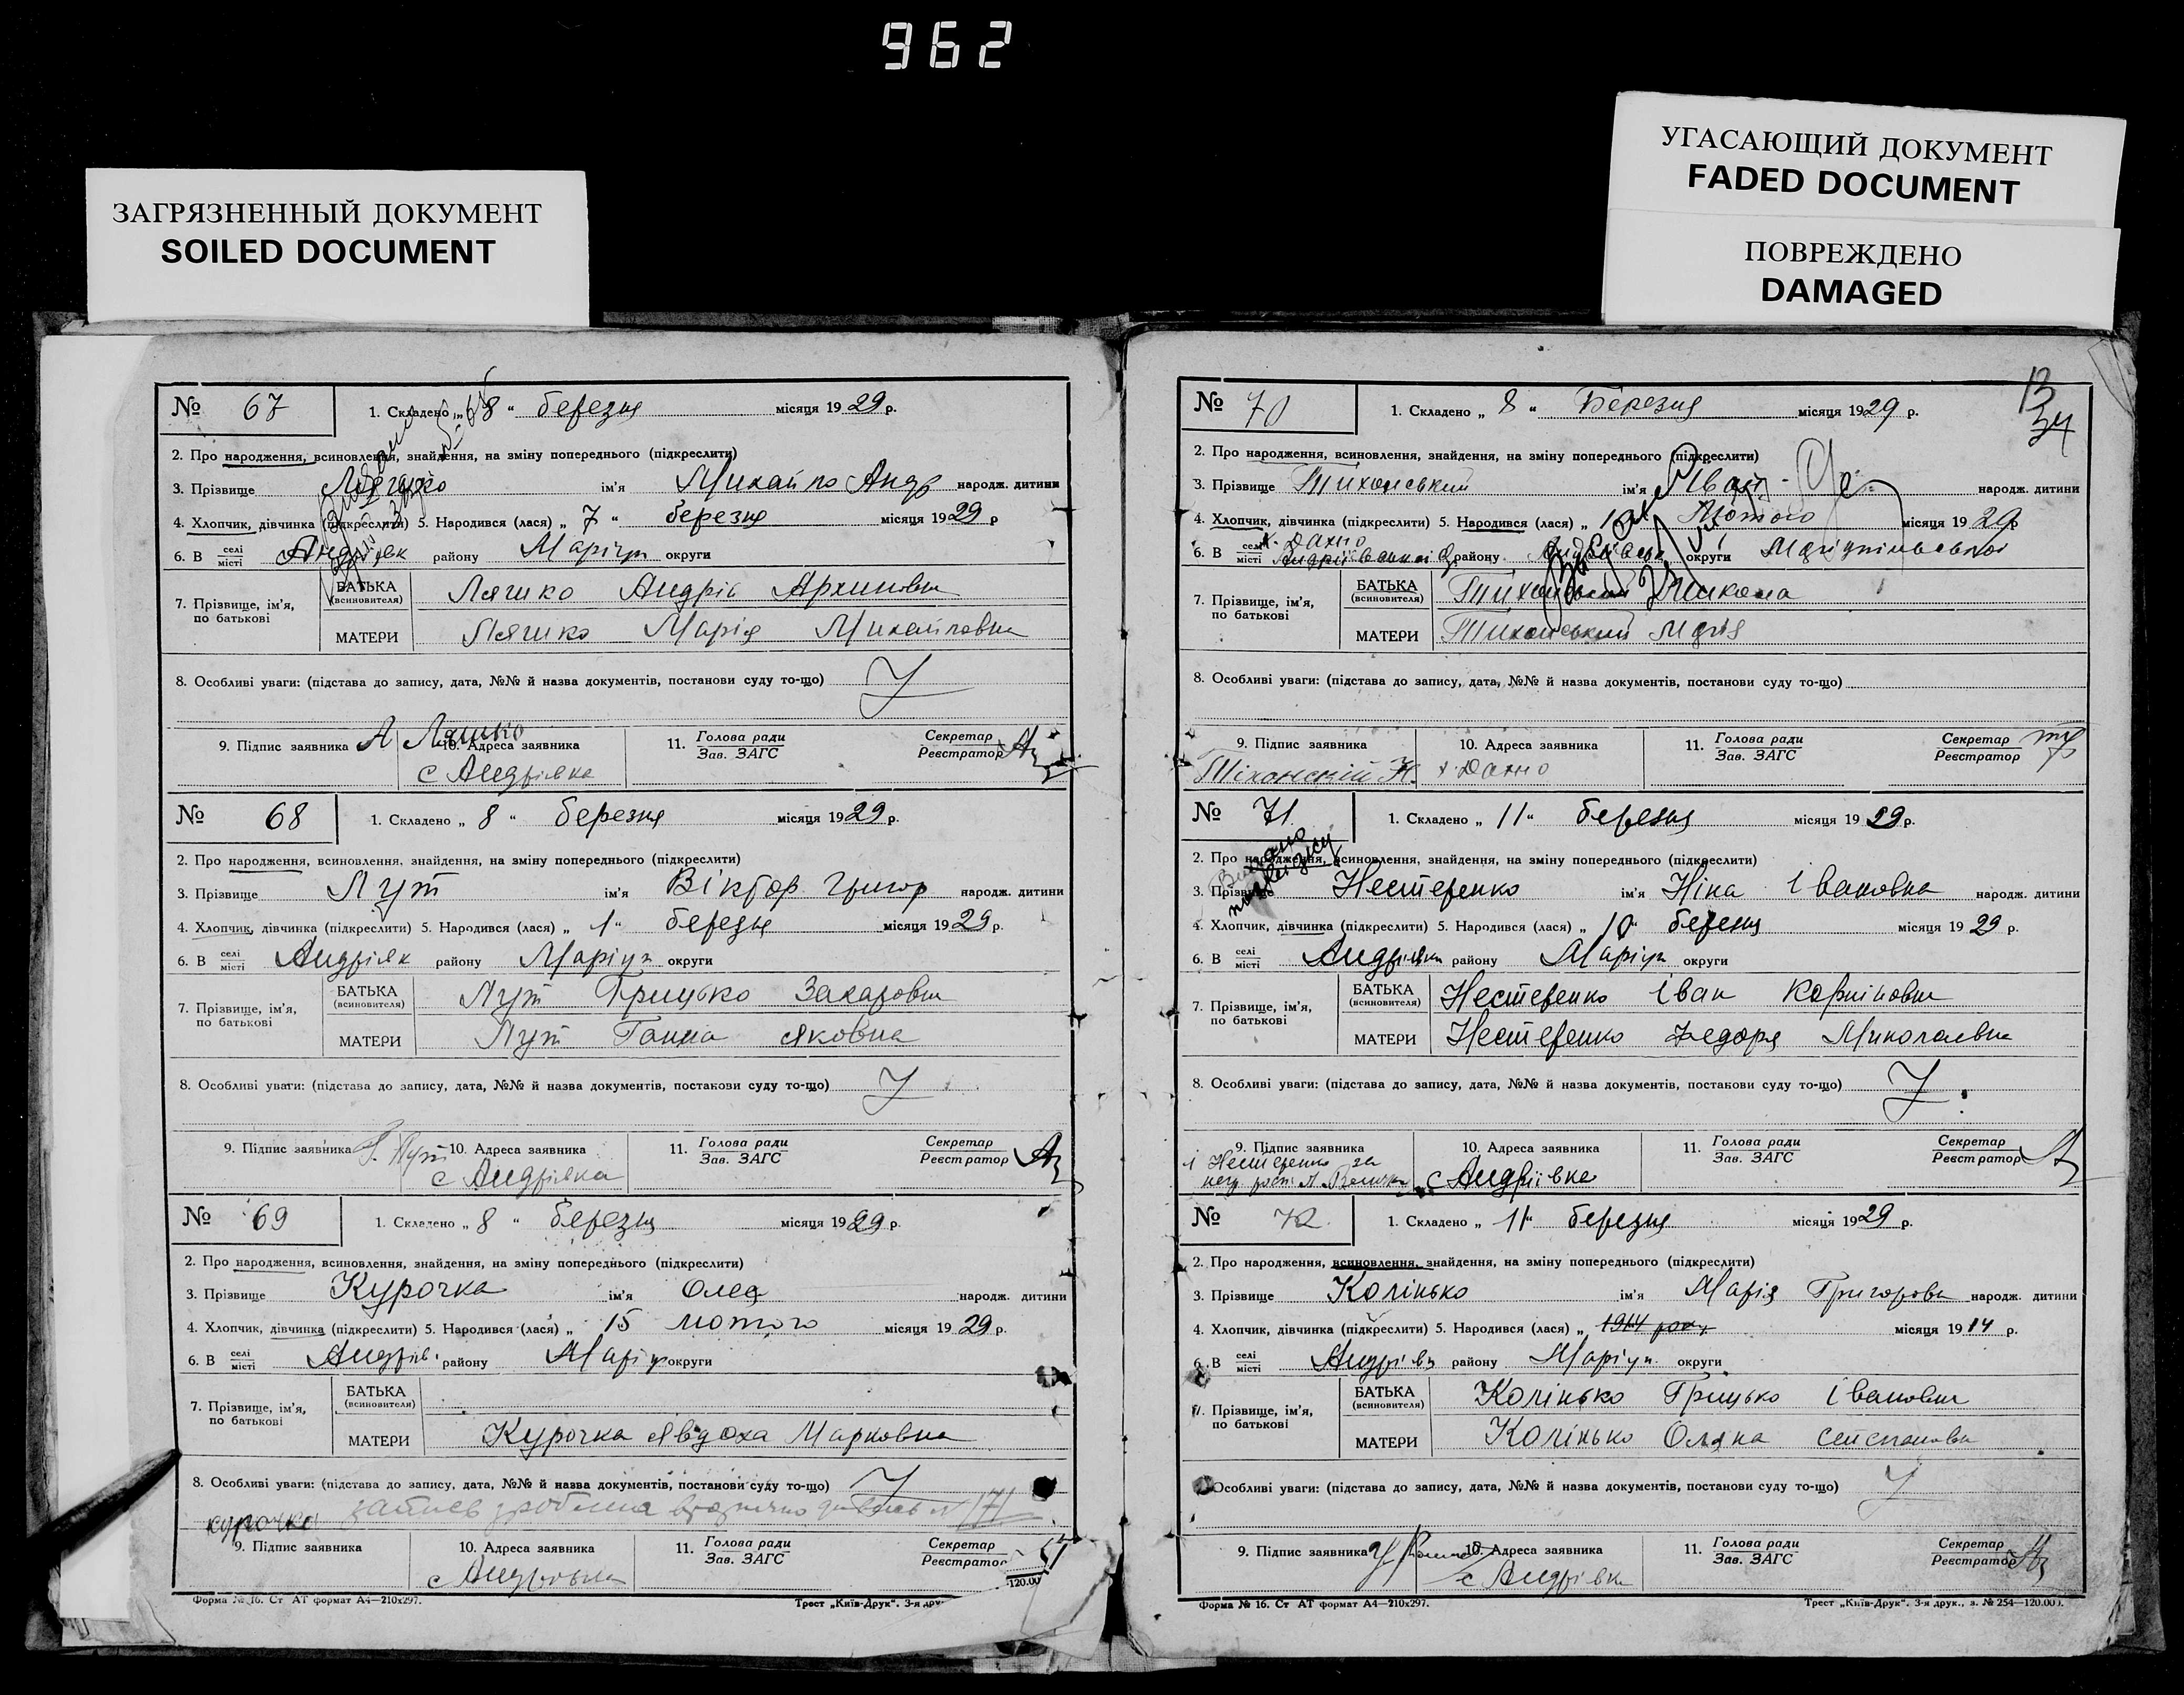 962
ЗАГРЯЗНЕННЫЙ ДОКУМЕНТ
SOILED DOCUMENT
УГАСАЮЩИЙ ДОКУМЕНТ
FADED DOCUMENT
ПОВРЕЖДЕНО
DAMAGED
№ 67 1. Складено „ 8 “ березня місяця 1929 р.
2. Про народження, всиновлення, знайдення, на зміну попереднього (підкреслити)
3. Прізвище Ляшко ім'я Михайло Андр народж. дитини
4. Хлопчик, дівчинка (підкреслити) 5. Народився (лася) „ 7 “ березня місяця 1929 р
6. В селі місті району Маріуп округи
7. Прізвище, ім'я, по батькові БАТЬКА (всиновителя) Ляшко Андрій Архипович
МАТЕРИ Ляшко Марія Михайловна
8. Особливі уваги: (підстава до запису, дата, №№ й назва документів, постанови суду то-що)
9. Підпис заявника А Ляшко 10. Адреса заявника 11. Голова ради Зав. ЗАГС Секретар Реєстратор
с Андріївка
№ 68 1. Складено „ 8 “ березня місяця 1929 р.
2. Про народження, всиновлення, знайдення, на зміну попереднього (підкреслити)
3. Прізвище Лут ім'я Віктор Григор народж. дитини
4. Хлопчик, дівчинка (підкреслити) 5. Народився (лася) „ 1 “ березня місяця 1929 р.
6. В селі місті Андріївк району Маріуп округи
7. Прізвище, ім'я, по батькові БАТЬКА (всиновителя) Лут Грицько Захарович
МАТЕРИ Лут Ганна Яковна
8. Особливі уваги: (підстава до запису, дата, №№ й назва документів, постанови суду то-що)
9. Підпис заявника Лут 10. Адреса заявника 11. Голова ради Зав. ЗАГС Секретар Реєстратор
с Андріївка
№ 69 1. Складено „ 8 “ березня місяця 1929 р.
2. Про народження, всиновлення, знайдення, на зміну попереднього (підкреслити)
3. Прізвище Курочка ім'я Олея народж. дитини
4. Хлопчик, дівчинка (підкреслити) 5. Народився (лася) „ 15 лютого місяця 1929 р.
6. В селі місті Андріїв. району Маріуп округи
7. Прізвище, ім'я, по батькові БАТЬКА (всиновителя)
МАТЕРИ Курочка Явдоха Марковна
8. Особливі уваги: (підстава до запису, дата, №№ й назва документів, постанови суду то-що)
запись зроблена № 171
курочка
9. Підпис заявника 10. Адреса заявника 11. Голова ради Зав. ЗАГС Секретар Реєстратор
с
120.00
Форма № 16. Ст АТ формат А4—210х297. Трест „Київ-Друк“. 3-я дру
13
34
№ 70 1. Складено „ 8 “ Березня місяця 1929 р.
2. Про народження, всиновлення, знайдення, на зміну попереднього (підкреслити)
3. Прізвище Тиханський ім'я Іван народж. дитини
4. Хлопчик, дівчинка (підкреслити) 5. Народився (лася) „ Лютого місяця 1929 р
6. В селі місті х. Дахно району округи Маріупільської
7. Прізвище, ім'я, по батькові БАТЬКА (всиновителя) Тиханський Микола
МАТЕРИ Тиханський Марія
8. Особливі уваги: (підстава до запису, дата, №№ й назва документів, постанови суду то-що)
9. Підпис заявника 10. Адреса заявника 11. Голова ради Зав. ЗАГС Секретар Реєстратор
Тіханскій Н. х. Дахно
№ 71 1. Складено „ 11 “ березня місяця 1929 р.
2. Про народження, всиновлення, знайдення, на зміну попереднього (підкреслити)
3. Прізвище Нестеренко ім'я Ніна Івановна народж. дитини
4. Хлопчик, дівчинка (підкреслити) 5. Народився (лася) „ 10 “ березня місяця 1929 р.
6. В селі місті Андріївки району Маріуп округи
7. Прізвище, ім'я, по батькові БАТЬКА (всиновителя) Нестеренко Іван Корнійович
МАТЕРИ Нестеренко Федора Миколаевна
8. Особливі уваги: (підстава до запису, дата, №№ й назва документів, постанови суду то-що)
9. Підпис заявника 10. Адреса заявника 11. Голова ради Зав. ЗАГС Секретар Реєстратор
і Нестеренко за
с Андріївка
№ 72 1. Складено „ 11 “ березня місяця 1929 р.
2. Про народження, всиновлення, знайдення, на зміну попереднього (підкреслити)
3. Прізвище Колінько ім'я Марія Григоровн народж. дитини
4. Хлопчик, дівчинка (підкреслити) 5. Народився (лася) „ 1914 року місяця 1914 р.
6. В селі місті Андріївк району Маріуп. округи
7. Прізвище, ім'я, по батькові БАТЬКА (всиновителя) Колінько Грицько Іванович
МАТЕРИ Колінько Оляна
8. Особливі уваги: (підстава до запису, дата, №№ й назва документів, постанови суду то-що)
9. Підпис заявника 10. Адреса заявника 11. Голова ради Зав. ЗАГС Секретар Реєстратор
с Андріївка
Форма № 16. Ст АТ формат А4—210х297. Трест „Київ-Друк“. 3-я друк., з. № 254—120.000.